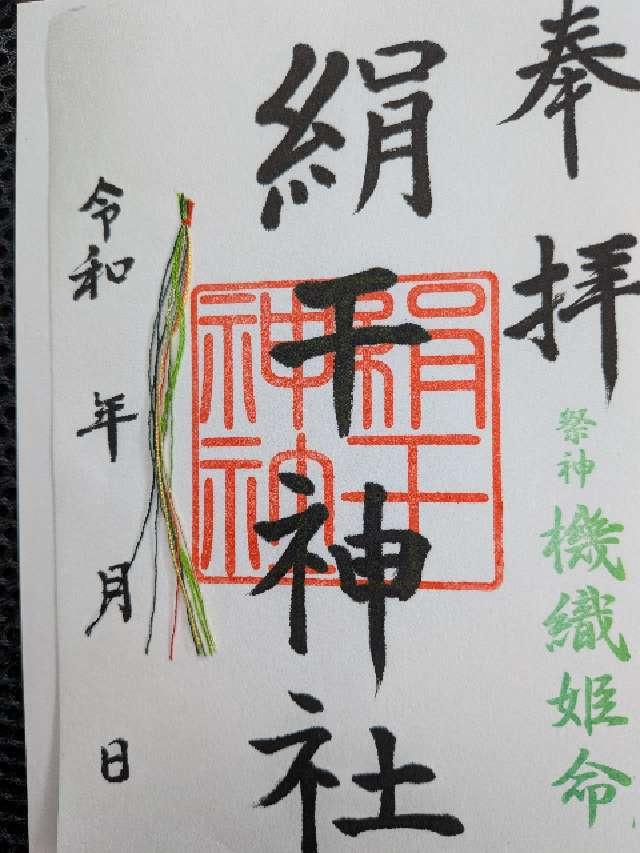 奉拝
祭神
機織姫命
絹干神社
絹干
神社
令和 年 月 日